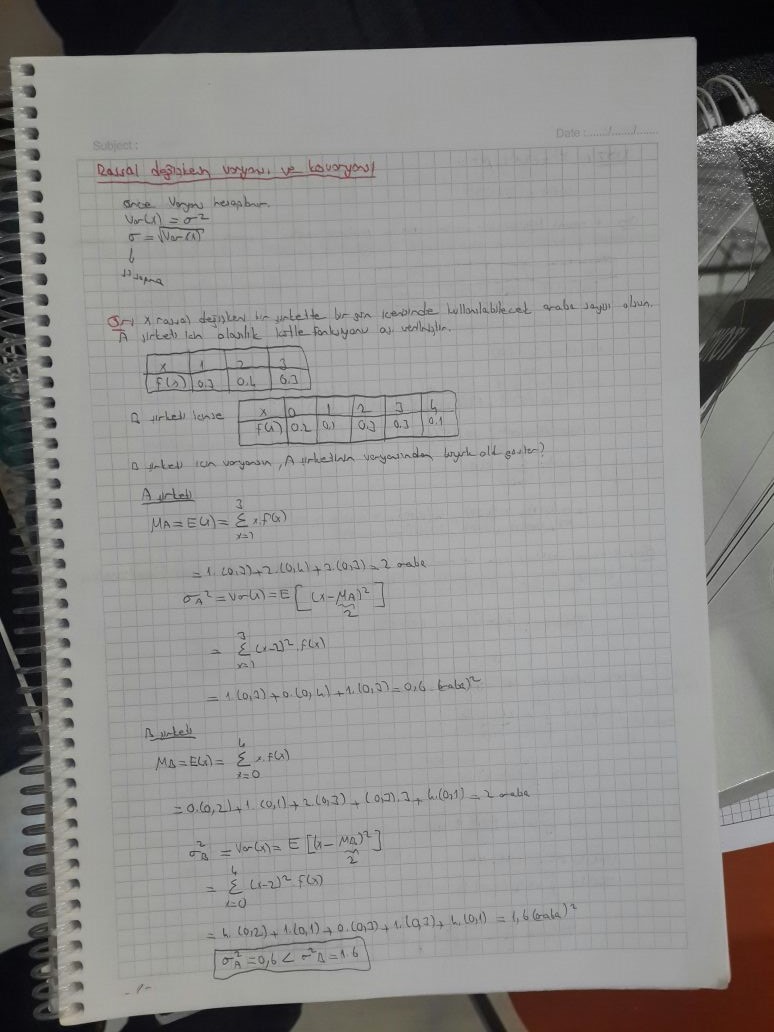 Date : ....../....../......
Subject :
Rassal değişken varyansı ve kovaryansı
önce Varyans hesaplanır.
Var(x) = σ²
σ = √Var(x)
↓
ss sapma
Ör: x rassal değişken bir şirkette bir gün içerisinde kullanılabilecek araba sayısı olsun.
A şirketi için olasılık kütle fonksiyonu aş. verilmiştir.
x 1 2 3
f(x) 0.3 0.4 0.3
B şirketi için ise
x 0 1 2 3 4
f(x) 0.2 0.1 0.3 0.3 0.1
B şirketi için varyansın, A şirketinin varyansından büyük old. göster?
A şirketi
μA = E(x) = 3 Σ x=1 x.f(x)
= 1.(0,3) + 2.(0,4) + 3.(0,3) = 2 araba
σA² = Var(x) = E [ (x - μA)² ]
2
= 3 Σ x=1 (x-2)². f(x)
= 1.(0,3) + 0.(0,4) + 1.(0,3) = 0,6 (araba)²
B şirketi
μB = E(x) = 4 Σ x=0 x.f(x)
= 0.(0,2) + 1.(0,1) + 2.(0,3) + (0,3).3 + 4.(0,1) = 2 araba
σ²B = Var(x) = E [(x - μB)²]
2
= 4 Σ x=0 (x-2)². f(x)
= 4.(0,2) + 1.(0,1) + 0.(0,3) + 1.(0,3) + 4.(0,1) = 1,6 (araba)²
σ²A = 0,6 < σ²B = 1.6
-1-